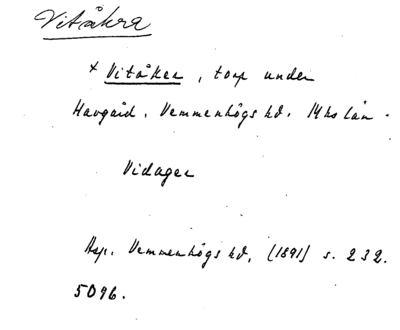 Vitåkra
× Vitåker, torp under
Havgård. Vemmenhögs hd. Mhs län.
Vidager
Asp. Vemmenhögs hd. (1891) s. 232.
5096.